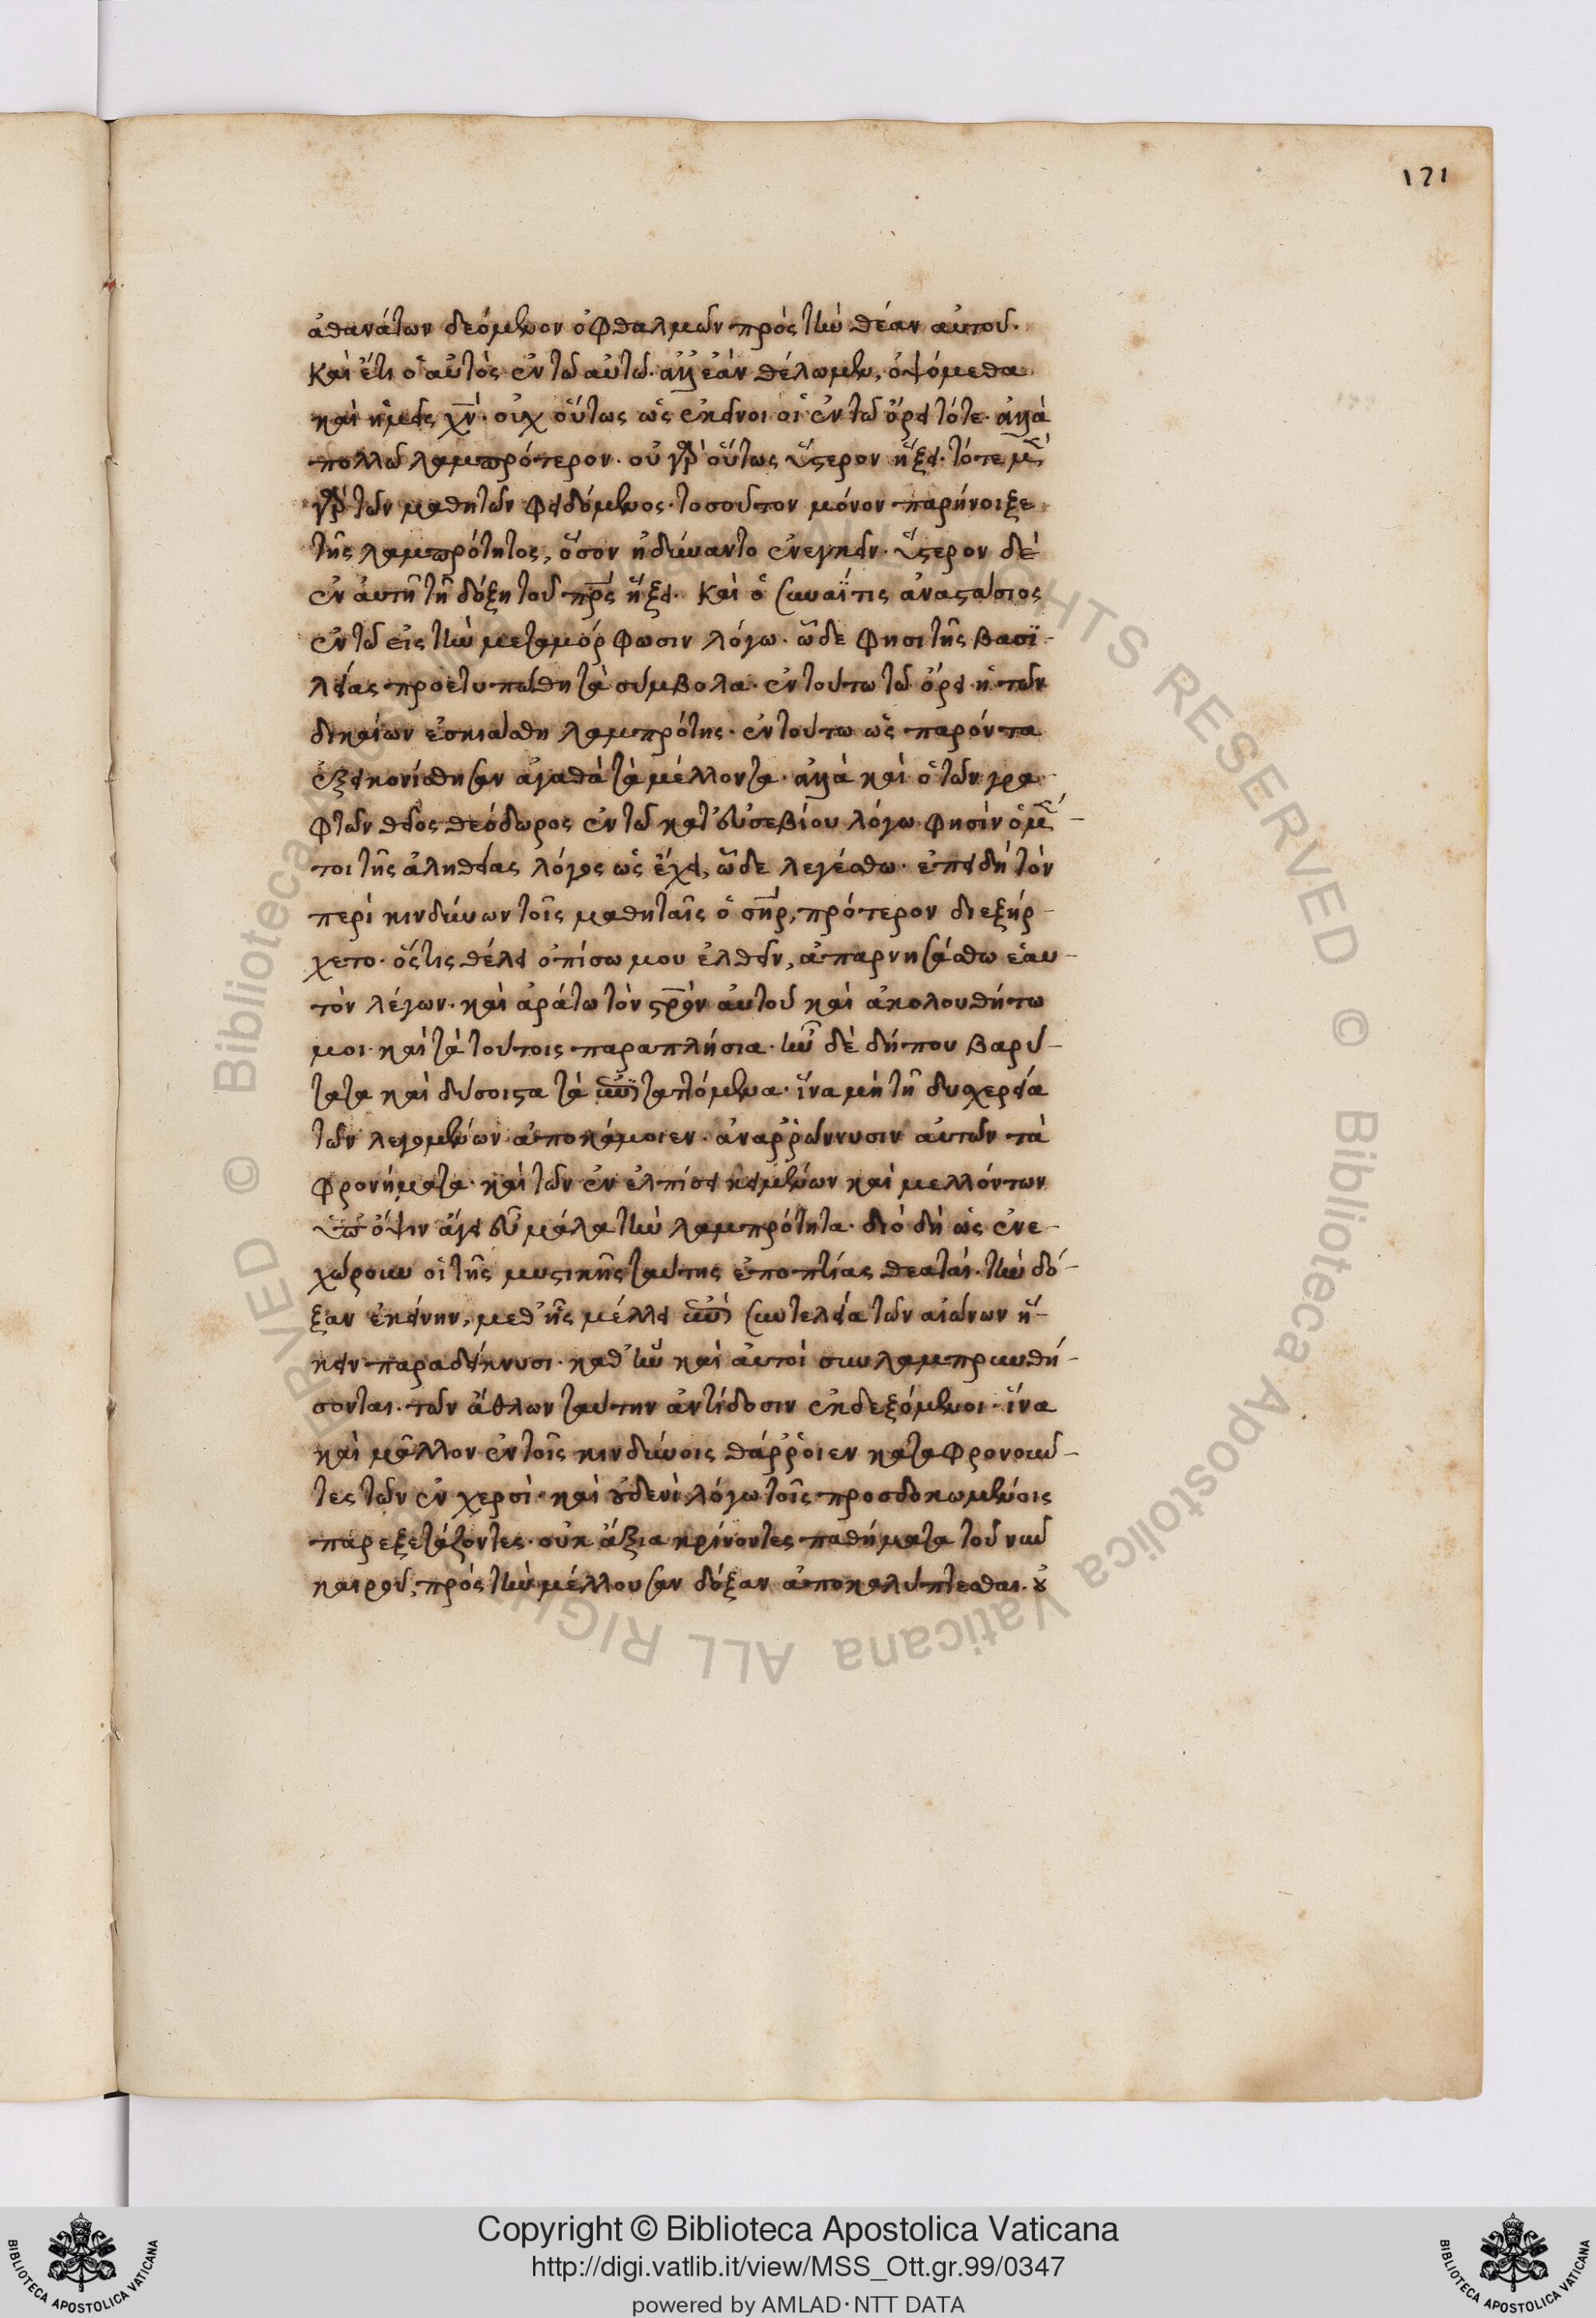 171
ἀθανάτων δεόμενον ὀφθαλμῶν πρὸς τὴν θέαν αὐτοῦ.
Καὶ ἔτι ὁ αὐτὸς ἐν τῷ αὐτῷ. ἀλλ' ἐὰν θέλωμεν, ὀψόμεθα
καὶ ἡμεῖς χν̅. οὐχ οὕτως ὡς ἐκεῖνοι οἱ ἐν τῷ ὄρει τότε. ἀλλὰ
πολλῷ λαμπρότερον. οὐ γὰρ οὕτως ὕστερον ἥξει. τότε μὲν
γὰρ τῶν μαθητῶν φειδόμενος. τοσοῦτον μόνον παρήνοιξε
τῆς λαμπρότητος, ὅσον ἠδύναντο ἐνεγκεῖν. ὕστερον δὲ
ἐν αὐτῇ τῇ δόξῃ τοῦ πρ̅ς ἥξει. Καὶ ὁ συναΐτις ἀναστάσιος
ἐν τῷ εἰς τὴν μεταμόρφωσιν λόγω. ὧδε φησὶ τῆς βασϊ-
λείας προετυπώθη τὰ σύμβολα. ἐν τούτω τῷ ὄρει. ἡ τῶν
δικαίων ἐσκιάσθη λαμπρότης. ἐν τούτω ὡς παρόντα
ἐξεικονίσθησαν ἀγαθὰ τὰ μέλλοντα. ἀλλὰ καὶ ὁ τῶν γρα-
φτῶν θεῖος θεόδωρος ἐν τῷ κατ' εὐσεβίου λόγω. φησὶν ὁ μέν-
τοι τῆς ἀληθείας λόγος ὡς ἔχει, ὧδε λεγέσθω. ἐπειδὴ τὸν
περὶ κινδύνων τοῖς μαθηταῖς ὁ σηρ̅, πρότερον διεξήρ-
χετο. ὅστις θέλει ὀπίσω μου ἐλθεῖν, ἀπαρνησάσθω ἑαυ-
τὸν λέγων. καὶ ἀράτω τὸν στρ̅ον αὐτοῦ καὶ ἀκολουθήτω
μοι. καὶ τὰ τούτοις παραπλήσια. ἦν δὲ δήπου βαρύ-
τατα καὶ δύσοιστα τὰ ἐπιταττόμενα. ἵνα μὴ τῇ δυσχερεία
τῶν λεγομένων ἀποκάμοιεν. ἀναῤῥώννυσιν αὐτῶν τὰ
φρονήματα. καὶ τῶν ἐν ἐλπίσι κειμένων καὶ μελλόντων
ὑπ' ὄψιν ἄγει εὖ μάλα τὴν λαμπρότητα. διὸ δὴ ὡς ἐνε-
χώρουν οἱ τῆς μυστικῆς ταύτης ἐποπτίας θεαταί. τὴν δό-
ξαν ἐκείνην, μεθ' ἧς μέλλει ἐπὶ συντελεία τῶν αἰώνων ἥ-
κειν παραδείκνυσι. καθ' ἣν καὶ αὐτοὶ συνλαμπρυνθή-
σονται. τῶν ἄθλων ταύτην ἀντίδοσιν ἐκδεξόμενοι. ἵνα
καὶ μᾶλλον ἐν τοῖς κινδύνοις θάῤῥοιεν καταφρονοῦν-
τες τῶν ἐν χερσὶ. καὶ οὐδενὶ λόγω τοῖς προσδοκωμένοις
παρεξετάζοντες. οὐκ ἄξια κρίνοντες παθήματα τοῦ νῦν
καιροῦ, πρὸς τὴν μέλλουσαν δόξαν ἀποκαλύπτεσθαι. οὐ
© Biblioteca Apostolica Vaticana ALL RIGHTS RESERVED © Biblioteca Apostolica Vaticana ALL RIGHTS RESERVED
Copyright © Biblioteca Apostolica Vaticana
http://digi.vatlib.it/view/MSS_Ott.gr.99/0347
powered by AMLAD·NTT DATA
BIBLIOTECA APOSTOLICA VATICANA
BIBLIOTECA APOSTOLICA VATICANA